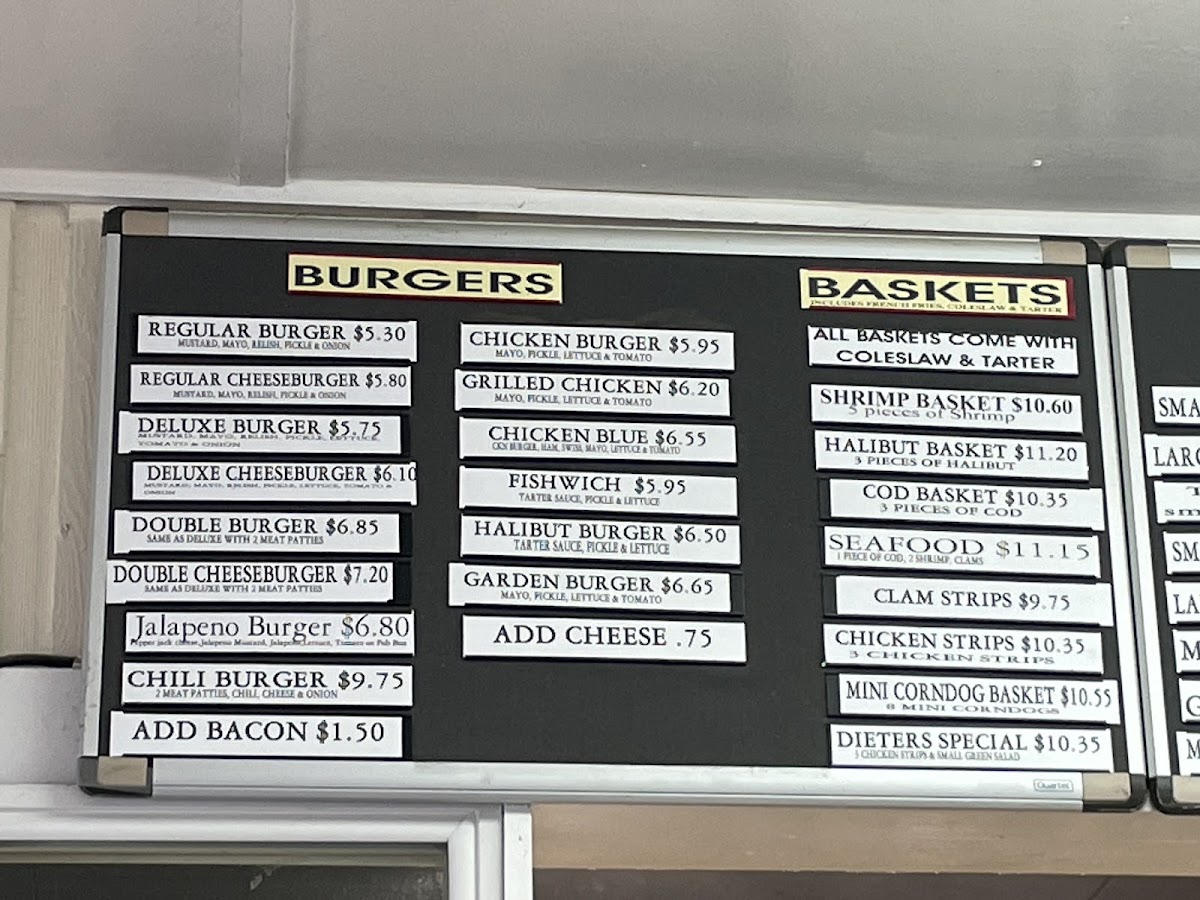 BURGERS
REGULAR BURGER $5.30
MUSTARD, MAYO, RELISH, PICKLE & ONION
REGULAR CHEESEBURGER $5.80
MUSTARD, MAYO, RELISH, PICKLE & ONION
DELUXE BURGER $5.75
MUSTARD, MAYO, RELISH, PICKLE, LETTUCE,
TOMATO & ONION
DELUXE CHEESEBURGER $6.10
MUSTARD, MAYO, RELISH, PICKLE, LETTUCE, TOMATO &
ONION
DOUBLE BURGER $6.85
SAME AS DELUXE WITH 2 MEAT PATTIES
DOUBLE CHEESEBURGER $7.20
SAME AS DELUXE WITH 2 MEAT PATTIES
Jalapeno Burger $6.80
Pepper jack cheese, Jalapeno Mustard, Jalapeno, Lettuce, Tomato on Pub Bun
CHILI BURGER $9.75
2 MEAT PATTIES, CHILI, CHEESE & ONION
ADD BACON $1.50
CHICKEN BURGER $5.95
MAYO, PICKLE, LETTUCE & TOMATO
GRILLED CHICKEN $6.20
MAYO, PICKLE, LETTUCE & TOMATO
CHICKEN BLUE $6.55
CKN BURGER, HAM, SWISS, MAYO, LETTUCE & TOMATO
FISHWICH $5.95
TARTER SAUCE, PICKLE & LETTUCE
HALIBUT BURGER $6.50
TARTER SAUCE, PICKLE & LETTUCE
GARDEN BURGER $6.65
MAYO, PICKLE, LETTUCE & TOMATO
ADD CHEESE .75
BASKETS
INCLUDES FRENCH FRIES, COLESLAW & TARTER
ALL BASKETS COME WITH
COLESLAW & TARTER
SHRIMP BASKET $10.60
5 pieces of Shrimp
HALIBUT BASKET $11.20
3 PIECES OF HALIBUT
COD BASKET $10.35
3 PIECES OF COD
SEAFOOD $11.15
1 PIECE OF COD, 2 SHRIMP, CLAMS
CLAM STRIPS $9.75
CHICKEN STRIPS $10.35
3 CHICKEN STRIPS
MINI CORNDOG BASKET $10.55
8 MINI CORNDOGS
DIETERS SPECIAL $10.35
3 CHICKEN STRIPS & SMALL GREEN SALAD
Quartet
SMA
LARG
T
sm
SM
LA
M
G
M